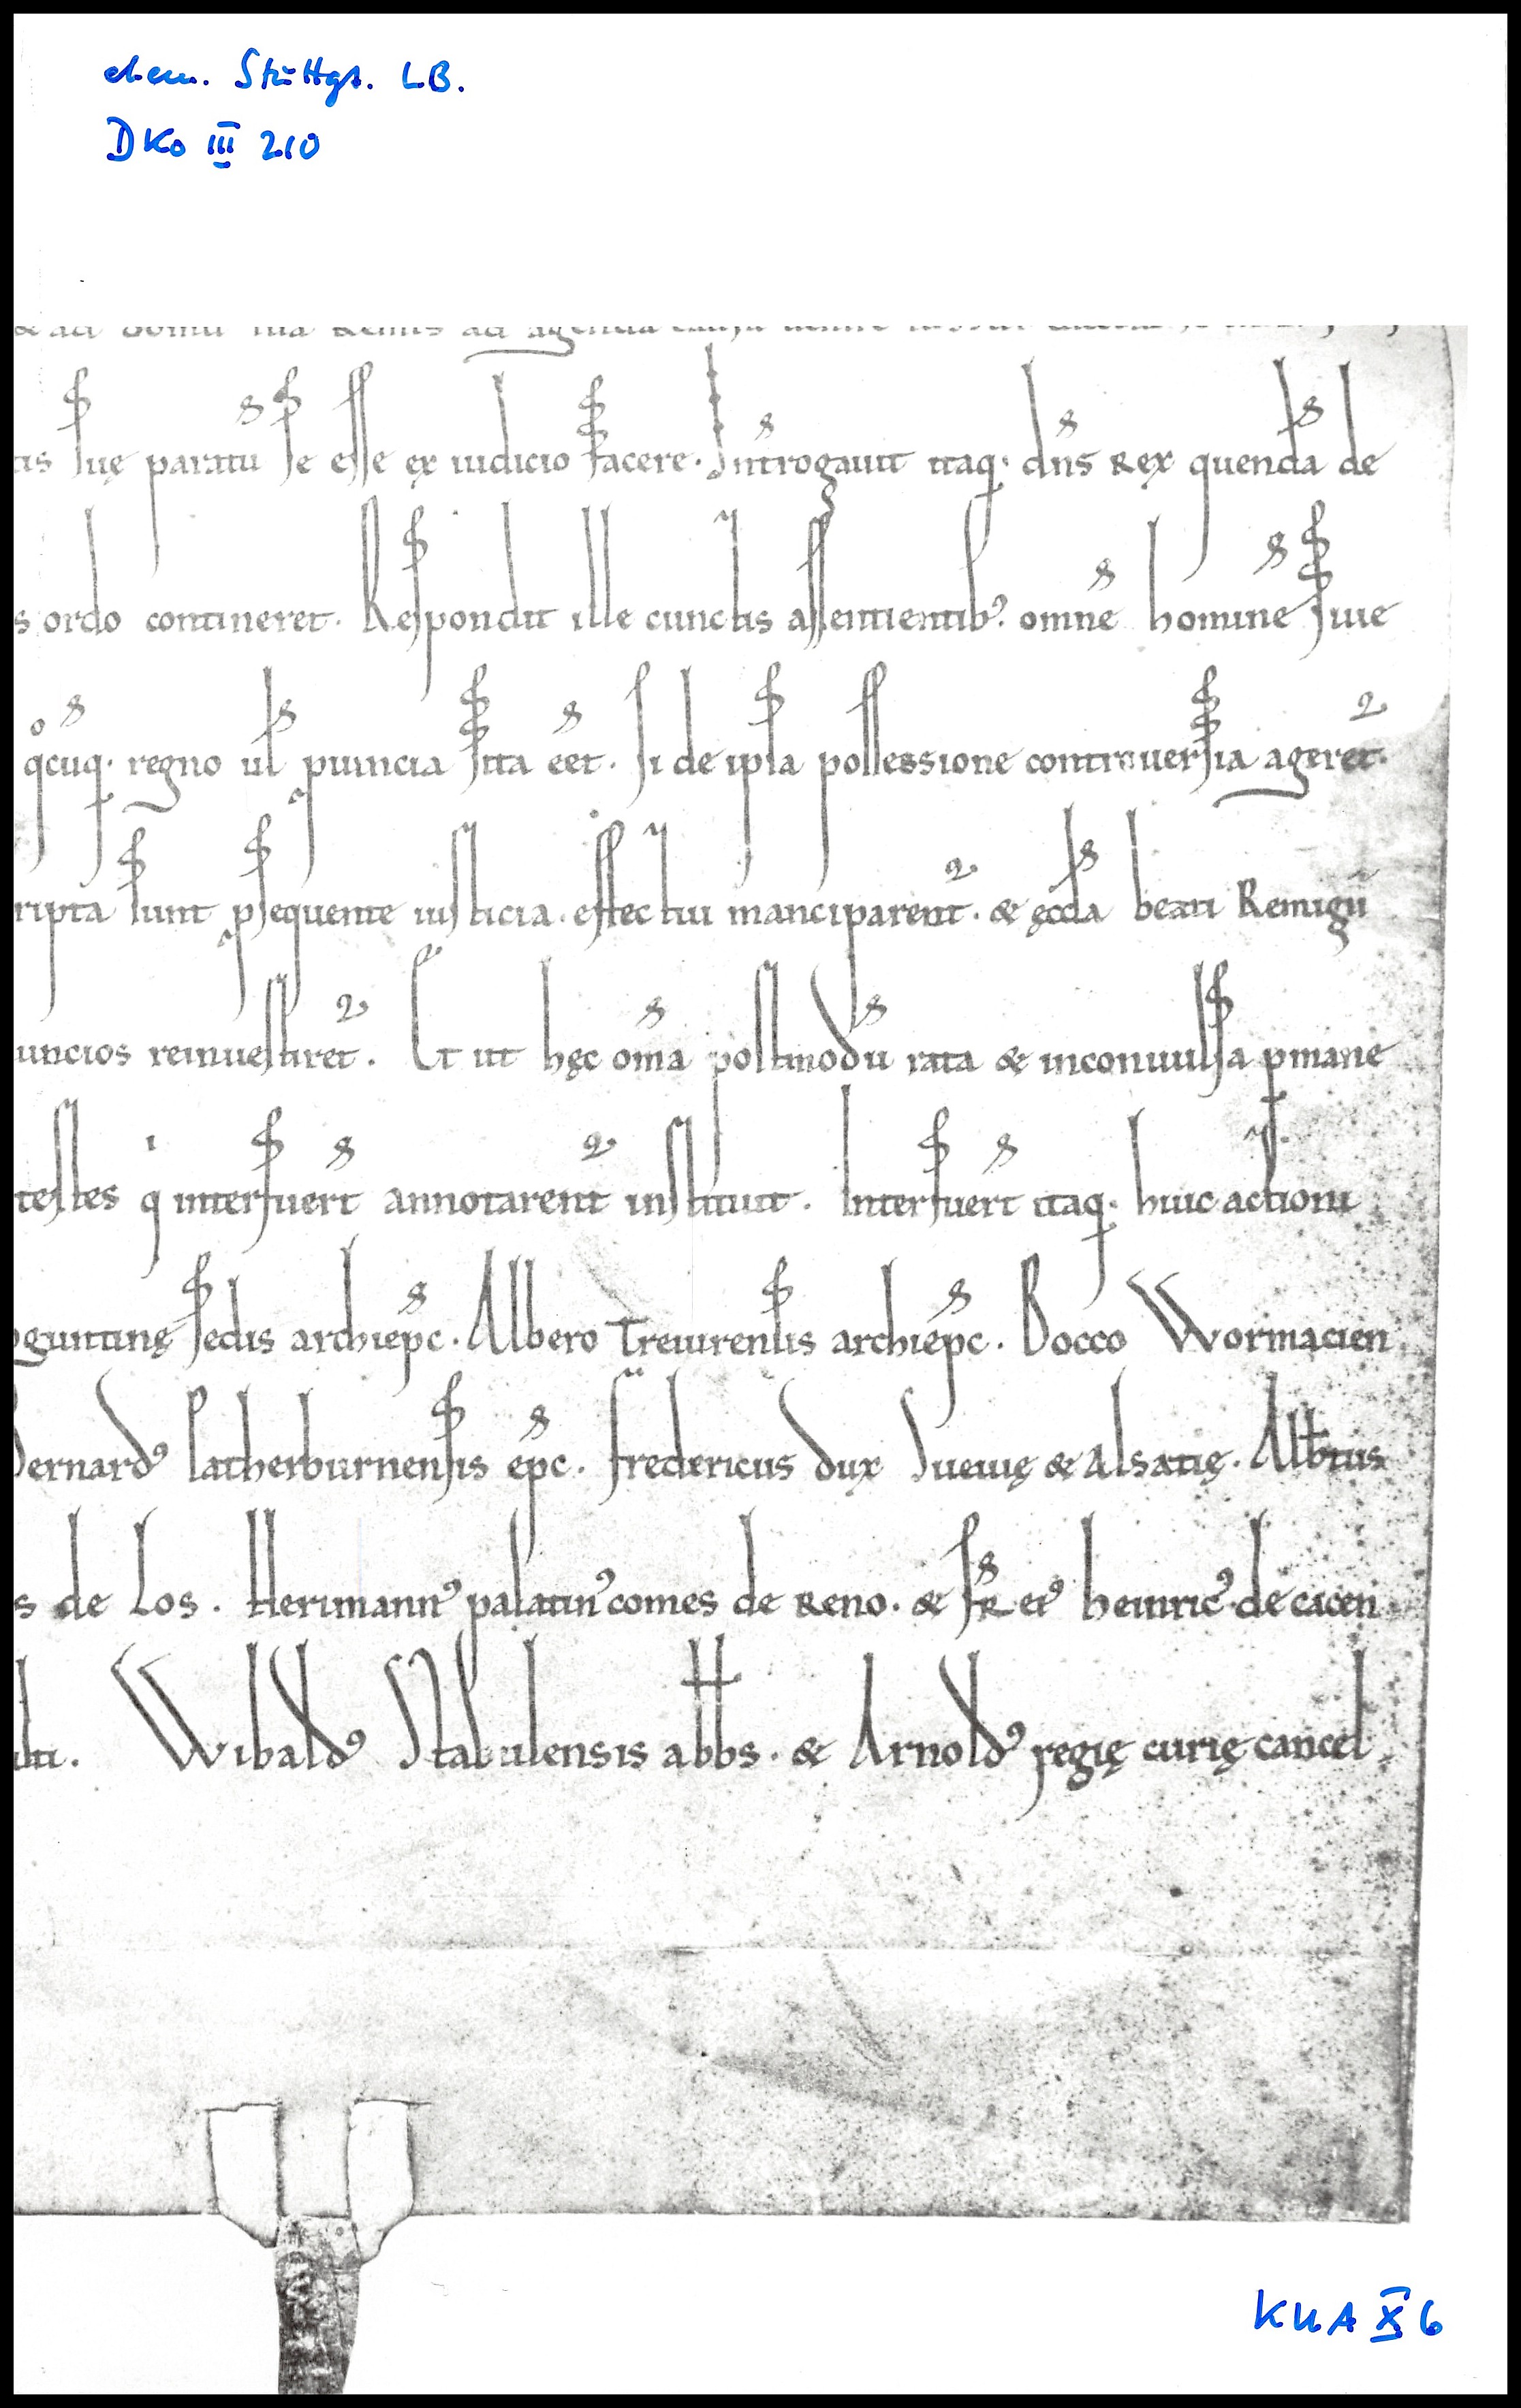 ehem. Stuttgt. LB.
DKo III 210
tis suę paratū se esse ex iudicio facere. Int̄rogauit itaq; dn̄s Rex quendā de
s ordo contineret. Respondit ille cunctis assentientib; omnē hominē siue
q̊cūq; regno ul̄ ꝓuincia sita eēt. si de ipsa possessione controuersia ageret᷑.
ripta sunt ꝓsequente iusticia. effectui manciparent᷑. & ęccl̄a beati Remigii
uncios reinuestiret᷑. Et ut hęc om̄a postmodū rata & inconuulsa ꝑmane
testes qͥ interfuer̄t annotarent᷑ instituit. Interfuer̄t itaq; huic actioni
oguntinę sedis archiep̄c. Albero Treuirensis archiep̄c. Bocco Wormacien
Bernardꝰ Patherburnensis ep̄c. fredericus dux Sueuię & Alsatię. Alb̄tus
s de Los. Herimannꝰ palatinꝰ comes de Reno. & fr̄ eiꝰ heinricꝰ de cacen
Wibaldꝰ Stabulensis abb̄s. & Arnoldꝰ regię curię cancel
KUA X 6